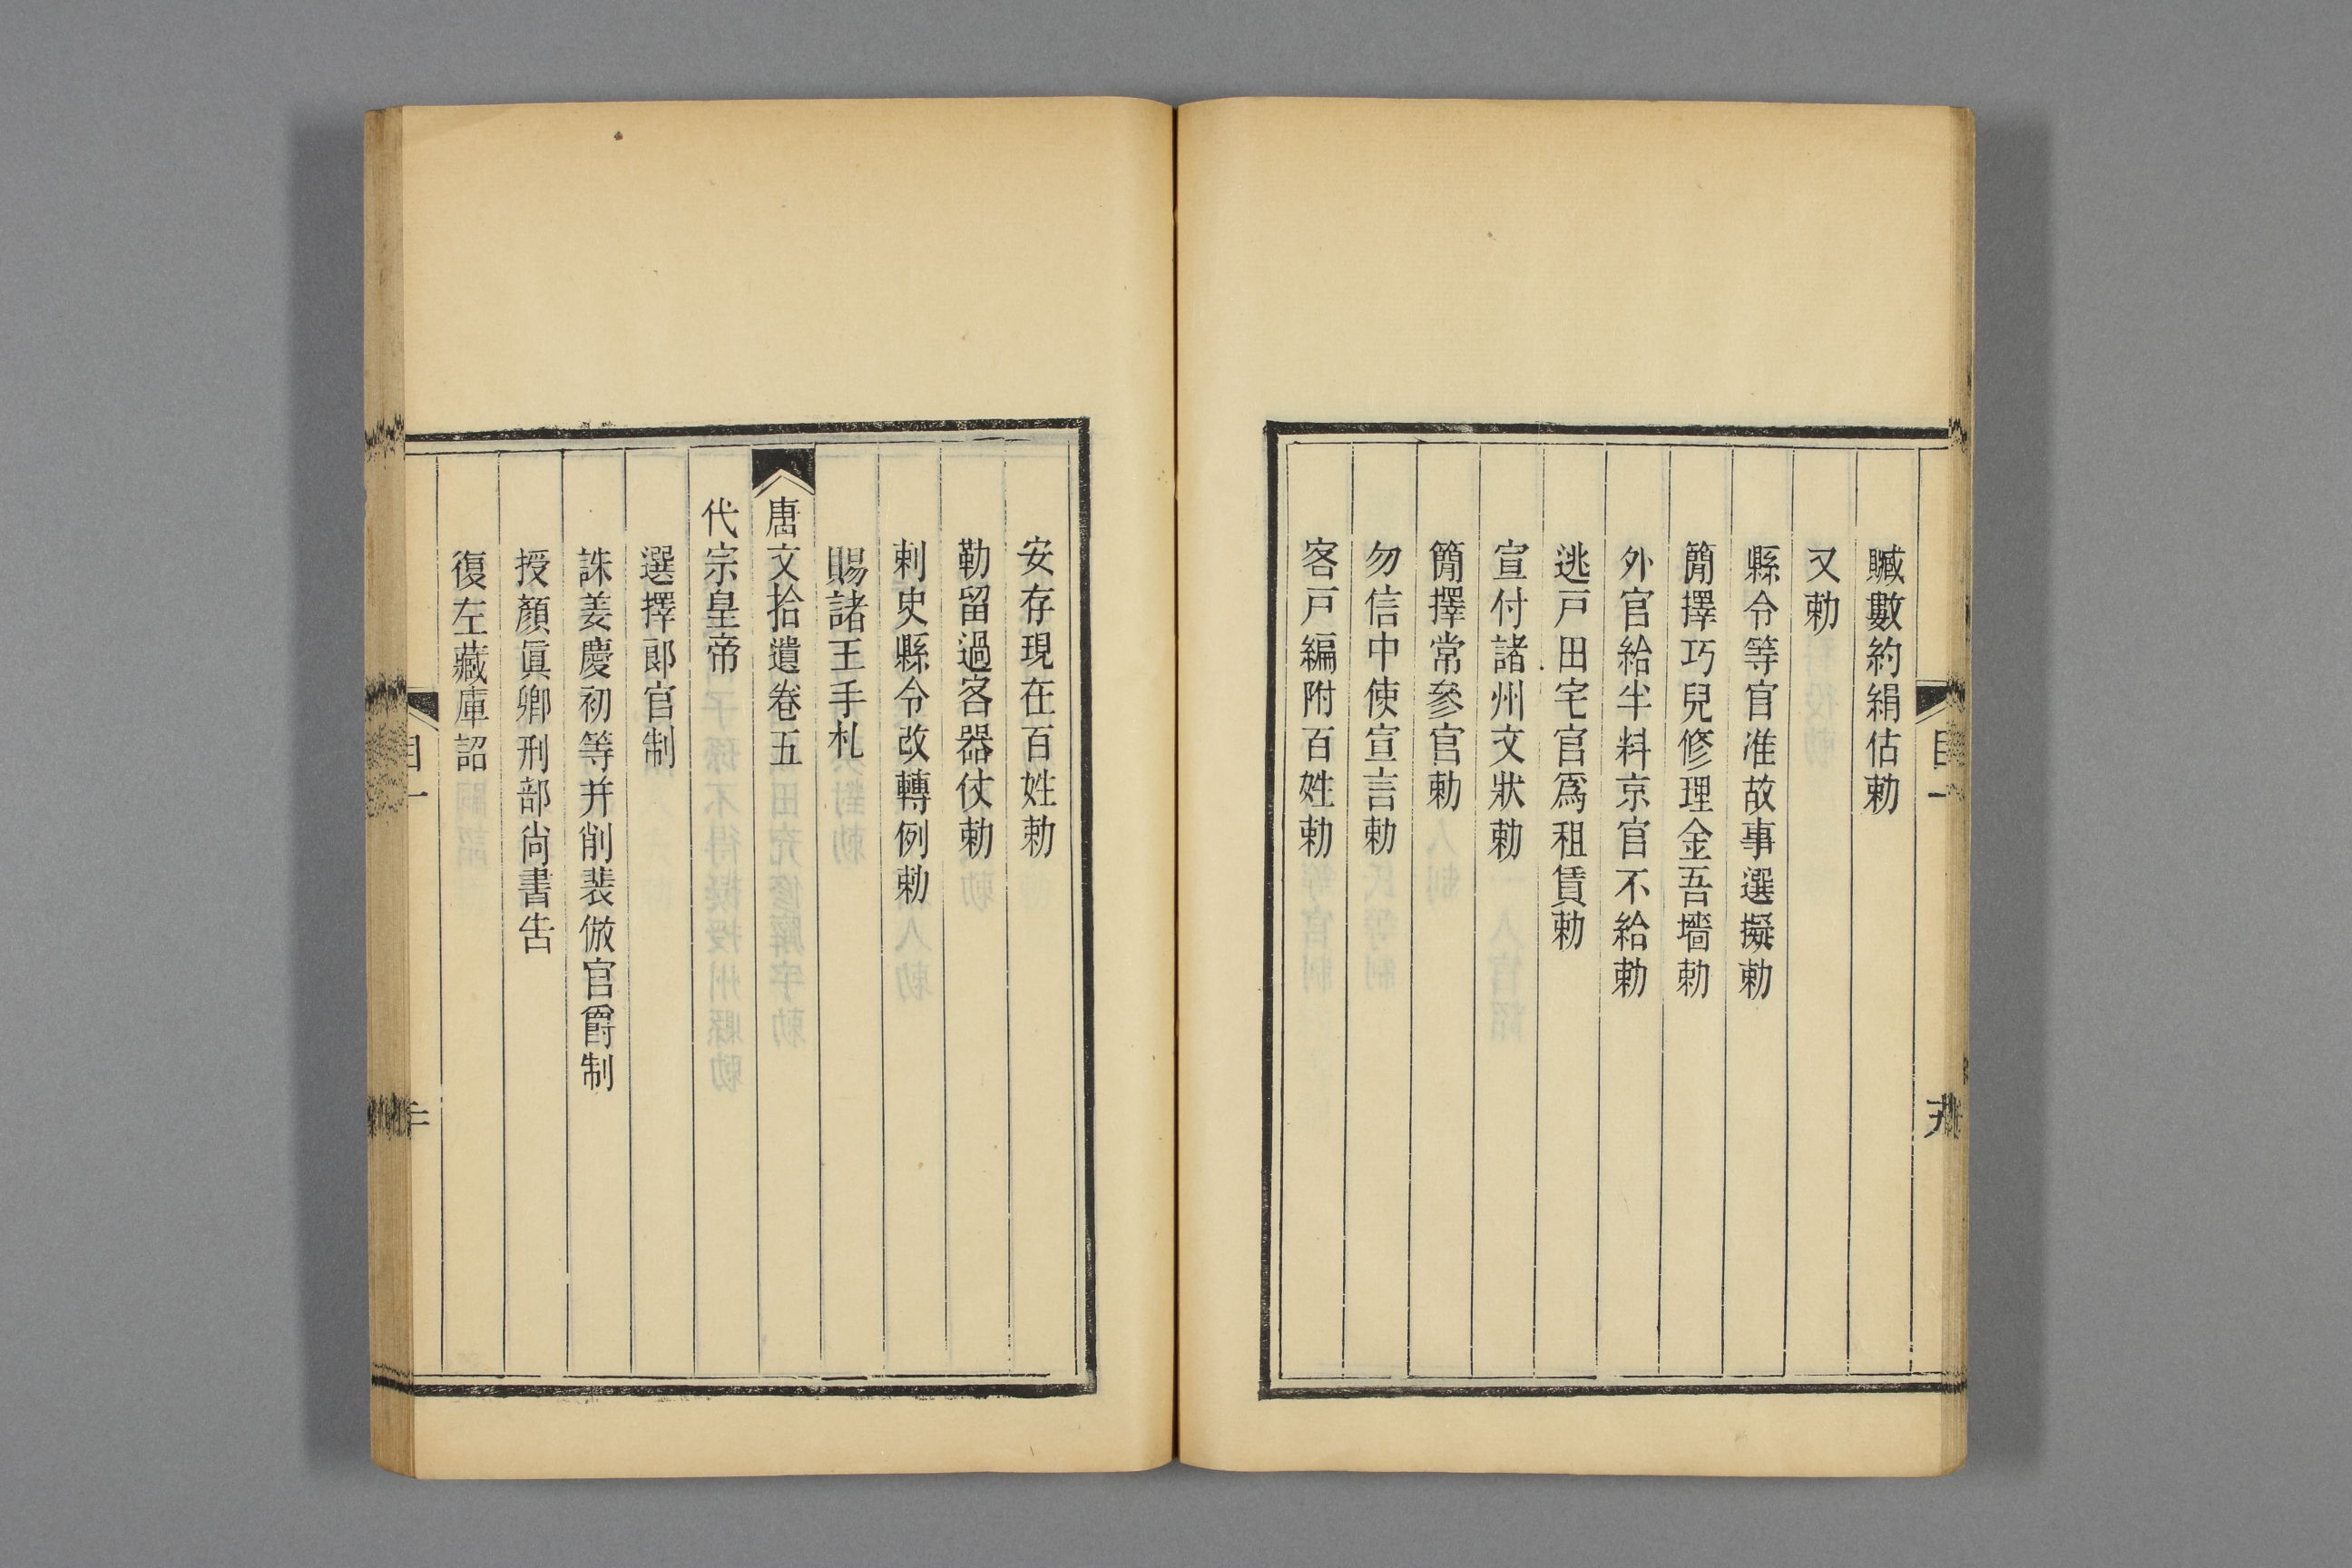 贓數約絹估勅
又勅
縣令等官准故事選擬勅
簡擇巧兒修理金吾墻勅
外官給半料京官不給勅
逃戸田宅官爲租賃勅
宣付諸州文狀勅
簡擇常參官勅
勿信中使宣言勅
客戸編附百姓勅
安存現在百姓勅
勒留過客器仗勅
刺史縣令改轉例勅
賜諸王手札
唐文拾遺卷五
代宗皇帝
選擇郞官制
誅姜慶初等并削裴倣官爵制
授顏眞卿刑部尙書吿
復左藏庫詔